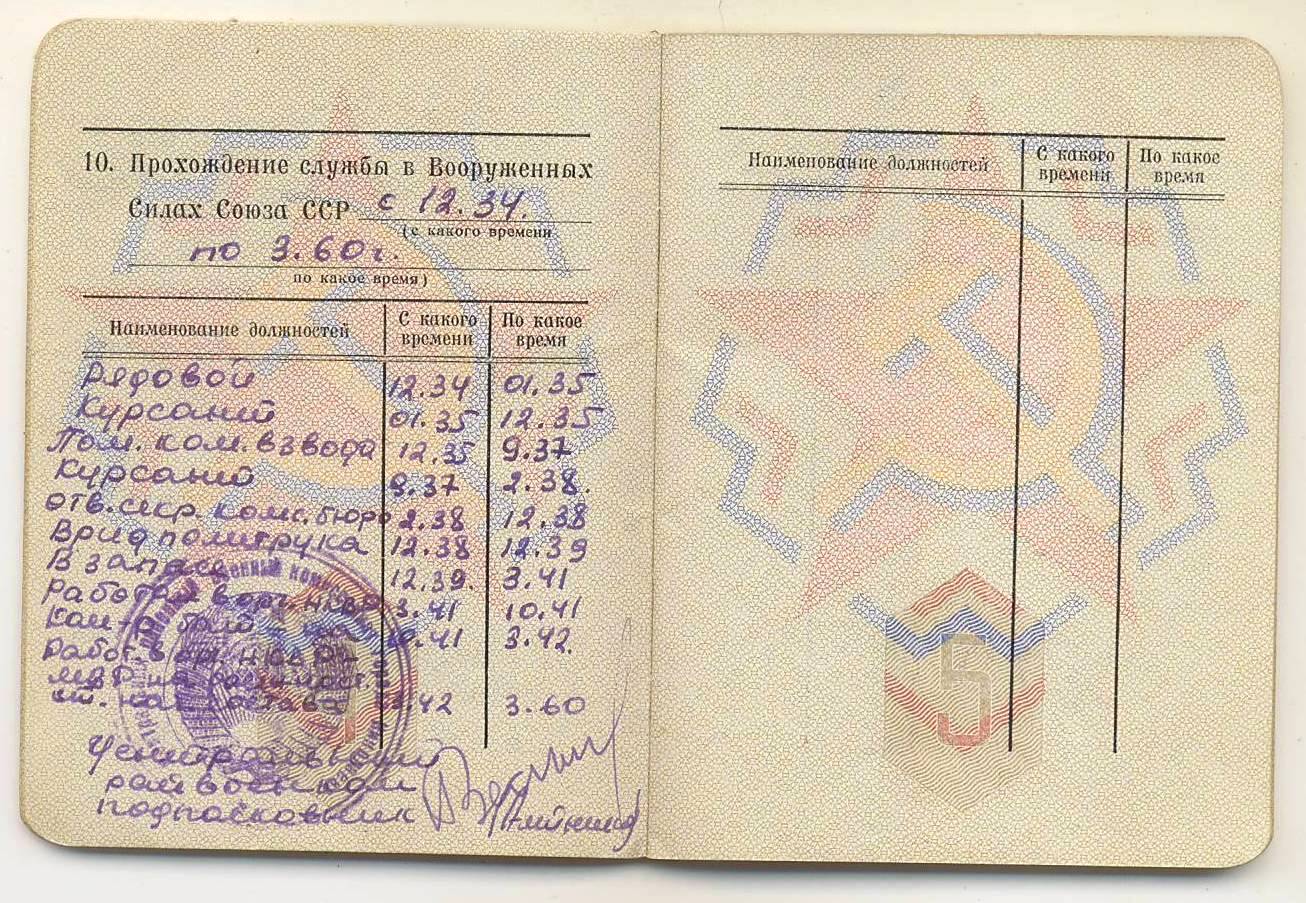 10. Прохождение службы в Вооруженных
Силах Союза ССР с 12.34.
(с какого времени
по 3.60 г.
по какое время)
Наименование должностей С какого времени По какое время
Рядовой 12.34 01.35
Курсант 01.35 12.35
Пом. ком. взвода 12.35 9.37
Курсант 9.37 2.38.
отв. секр. комс. бюро 2.38 12.38
Врид политрука 12.38 12.39
В запасе 12.39. 3.41
Работал в орг. НКВД 3.41 10.41
10.41 3.42.
Работ. в орг. НКВД и
МВД на должност.
42 3.60
Центральный
райвоенком
подполковник
Наименование должностей С какого времени По какое время
5